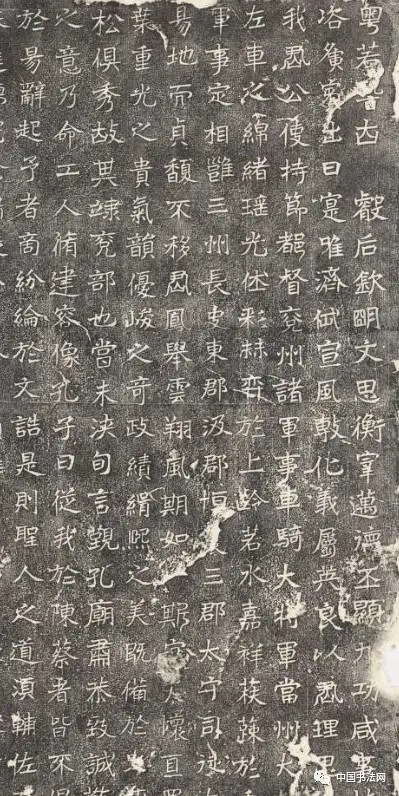 粤若昔古 叡后欽明文思衡宰邁德丕顯九功咸事
出日寔唯濟宣風敷化義屬英良以君理思
我君公優持節都督兗州諸軍事車騎大將軍當州大
左車之綿緒瑤光休彩赫弈於上齡若水嘉祥葳蕤於
軍事定相雝三州長史東郡汲郡恒三郡太守司徒
易地而貞馥不移君鳳舉雲翔風期如斯寔天懷直置
葉重光之貴氣韻優峻之奇政績緝熙之美既備於
松俱秀故其隸兗部也當未浹旬言覲孔廟肅恭致誠
之意乃命工人脩建容像孔子曰從我於陳蔡者皆不
於易辭起予者商紛綸於文誥是則聖人之道須輔佐
中国书法网